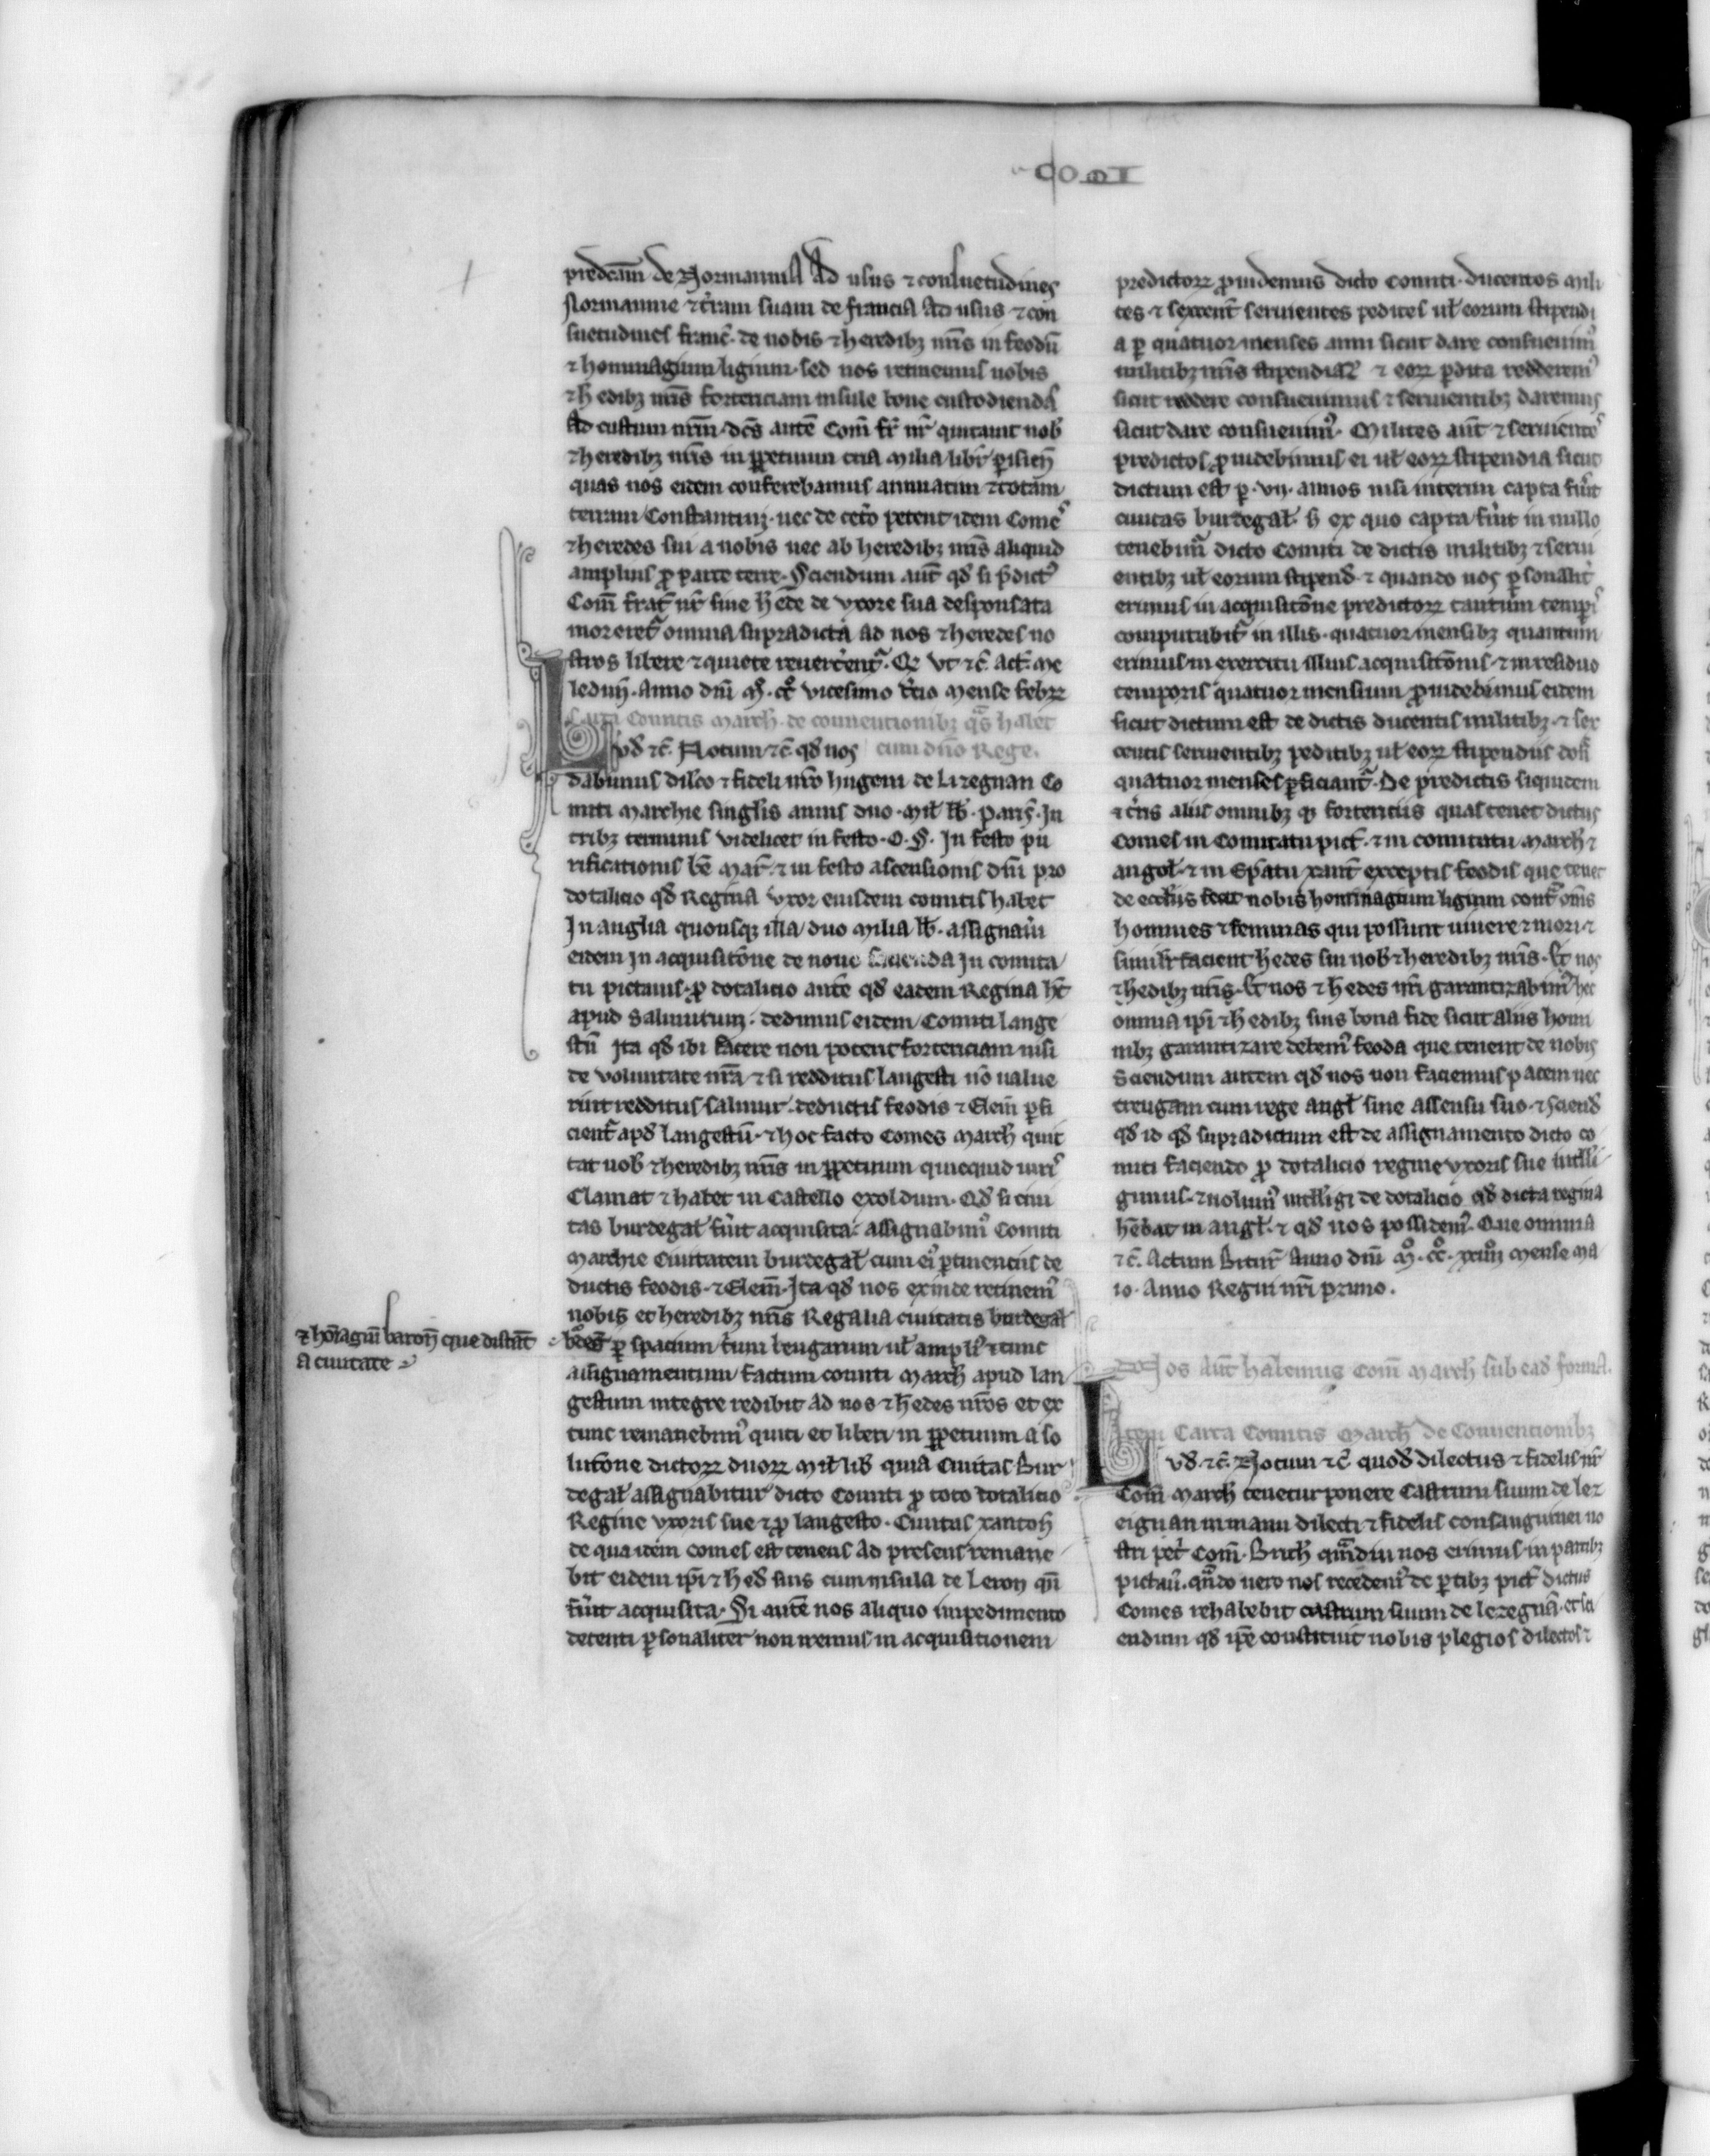 predc̄am de Normannia Ad usus ⁊ consuetudines
Normannie ⁊ t'ram suam de francia Ad usus ⁊ con
suetudines franc̄. de nobis ⁊ heredibꝫ nr̄is in feodū
⁊ hommagium ligium. sed nos retinemus nobis
⁊ h'edibꝫ nr̄is fortericiam insule bone custodiendā
Ad custum nr̄m. dc̄s autē Com̄ fr̄ nr̄ quitauit nob̄
⁊ heredibꝫ nr̄is in ꝑpetuum tria milia libr̄ ꝑisieñ
quas nos eidem conferebamus annuatim ⁊ totam
terram Constantini. nec de cet'o petent idem Comes
⁊ heredes sui a nobis nec ab heredibꝫ nr̄is aliquid
amplius ꝓ parte terre. Sciendum aut̄ qd̄ si p̄dict'
Com̄ frat̄ nr̄ sine h'ede de uxore sua desponsata
moreret' omnia supradicta ad nos ⁊ heredes no
stros libere ⁊ quiete reuert'ent'. Qꝫ vt ⁊c̄ act̄. Me
leduñ. Anno dn̄i M̊. cc̊ vicesimo t'cio Mense febrꝝ
Carta Comitis March̄. de conuentionibꝫ qᵃs habet
Lvd̄ ⁊c̄. Notum ⁊c̄ qd̄ nos cum dn̄o Rege.
dabimus dilc̄o ⁊ fideli nr̄o hugoni de Lizegnan Co
miti Marchie singl'is annis duo. Mil̄ lb̄. Paris̄. In
tribꝫ terminis videlicet in festo. O. S. In festo pu
rificationis bē Mar̄. ⁊ in festo ascensionis dn̄i pro
dotalicio qd̄ Regina Vxor eiusdem comitis habet
In anglia quousqꝫ illa duo Milia lb̄. assignaui
eidem in acquisitōne de nouo facienda In comita
tu pictauis. ꝓ dotalicio autē qd̄ eadem Regina h̄t
apud Salmurum. dedimus eidem Comiti lange
stū Ita qd̄ ibi facere non potent fortericiam nisi
de voluntate nr̄a ⁊ si redditus langesti nō ualue
rint redditus salmur̄. deductis feodis ⁊ Elem̄ ꝑfi
cient' apd̄ langestū. ⁊ hoc facto Comes March̄ quit
tat nob̄ ⁊ heredibꝫ nr̄is in ꝑpetuum quicquid iuris
Clamat ⁊ habet in Castello exoldum. Qd̄ si ciui
tas burdegal̄ fu'it acquisita. assignabim' Comiti
Marchie Ciuitatem burdegal̄ cum ei' ꝑtinenciis de
ductis feodis. ⁊ Elem̄. Ita qd̄ nos exinde retinem'
nobis et heredibꝫ nr̄is Regalia ciuitatis burdegal̄
⁊ hom̄agiū baroñ que distāt
a ciuitate
ꝑ spacium t'um leugarum ul̄ ampli' ⁊ tunc
assignamentum factum comiti March̄ apud lan
gestum integre redibit ad nos ⁊ h'edes nr̄os et ex
tunc remanebim' quiti et liberi in ꝑpetuum a so
lutōne dictorꝝ duorꝝ Mil̄ lib̄ quia Ciuitas Bur
degal̄ assignabitur dicto Comiti ꝓ toto dotalicio
Regine vxoris sue ⁊ ꝓ langesto. Ciuitas xantoñ
de qua idem comes est tenens Ad presens remane
bit eidem ip̄i ⁊ h'ed̄ suis cum insula de Leron qn̄
fu'it acquisita. Si autē nos aliquo impedimento
detenti ꝑsonaliter non iremus in acquisitionem
predictorꝝ ꝓuidemus dicto comiti. ducentos mili
tes ⁊ sexcent̄ seruientes pedites ul̄ eorum stipendi
a ꝑ quatuor menses anni sicut dare consueuim'
militibꝫ nr̄is stipendia ⁊ eorꝝ ꝑdita redderem'
sicut reddere consueuimus ⁊ seruientibꝫ daremus
sicut dare consueuim'. Milites aūt ⁊ seruientes
predictos ꝓuidebimus ei ul̄ eorꝝ stipendia sicut
dictum est ꝑ. vij. annos nisi interim capta fu'it
ciuitas burdegal̄. s; ex quo capta fu'it in nullo
tenebim' dicto Comiti de dictis militibꝫ ⁊ serui
entibꝫ ul̄ eorum stipend̄. ⁊ quando nos ꝑsonalit'
erimus in acquisitōne predictorꝝ tantum tempis
computabit' in illis. quatuor mensibꝫ quantum
erimus in exercitu illius acquisitōnis. ⁊ in residuo
temporis quatuor mensium ꝓuidebimus eidem
sicut dictum est de dictis ducentis militibꝫ. ⁊ sex
centis seruientibꝫ peditibꝫ ul̄ eorꝝ stipendiis
quatuor menses ꝑficiant'. De predictis siquidem
⁊ t'ris aliis omnibꝫ ⁊ fortericiis quas tenet dictus
Comes in Comitatu pict̄. ⁊ in comitatu March̄ ⁊
angol̄. ⁊ in Ep̄atu xant̄ exceptis feodis que tenet
de eccl'iis fecit nobis hommagium ligium cont' om̄s
homines ⁊ feminas qui possunt uiuere ⁊ mori. ⁊
similit' facient h'edes sui nob̄ ⁊ heredibꝫ nr̄is.
⁊ h'edibꝫ nr̄is. Et nos ⁊ h'edes nr̄i garantizabim' hec
omnia ip̄i ⁊ h'edibꝫ suis bona fide sicut aliis homi
nibꝫ garantizare debem' feoda que tenent de nobis
Sciendum autem qd̄ nos non faciemus pacem nec
treugam cum rege angl̄ sine assensu suo. ⁊ sciend̄
qd̄ id qd̄ supradictum est de assignamento dicto co
miti faciendo ꝓ dotalicio regine vxoris sue intelli
gimus. ⁊ uolum' intelligi de dotalicio qd̄ dicta regina
h'ebat in angl̄. ⁊ qd̄ nos possidem'. Que omnia
⁊c̄. Actum Bitur̄ Anno dn̄i M̊. cc̊. xxiiij Mense Ma
io. Anno Regni nr̄i primo.
Nos aūt habemus Com̄ March̄ sub ead̄ forma.
Item Carta Comitis March̄ de Conuentionibꝫ
Lvd̄. ⁊c̄. Notum ⁊c̄ quod dilectus ⁊ fidelis nr̄
Com̄ March̄ tenetur ponere Castrum suum de lez
eignan in manu dilecti ⁊ fidelis consanguinei no
stri pet̄ Com̄. Brit̄ qᵃmdiu nos erimus in partibꝫ
pictau̅. qᵃndo uero nos recedem' de ꝑtibꝫ pict̄ dictus
Comes rehabebit castrum suum de lezegnā. et sci
endum qd̄ ip̄e constituit nobis plegios dilectos ⁊